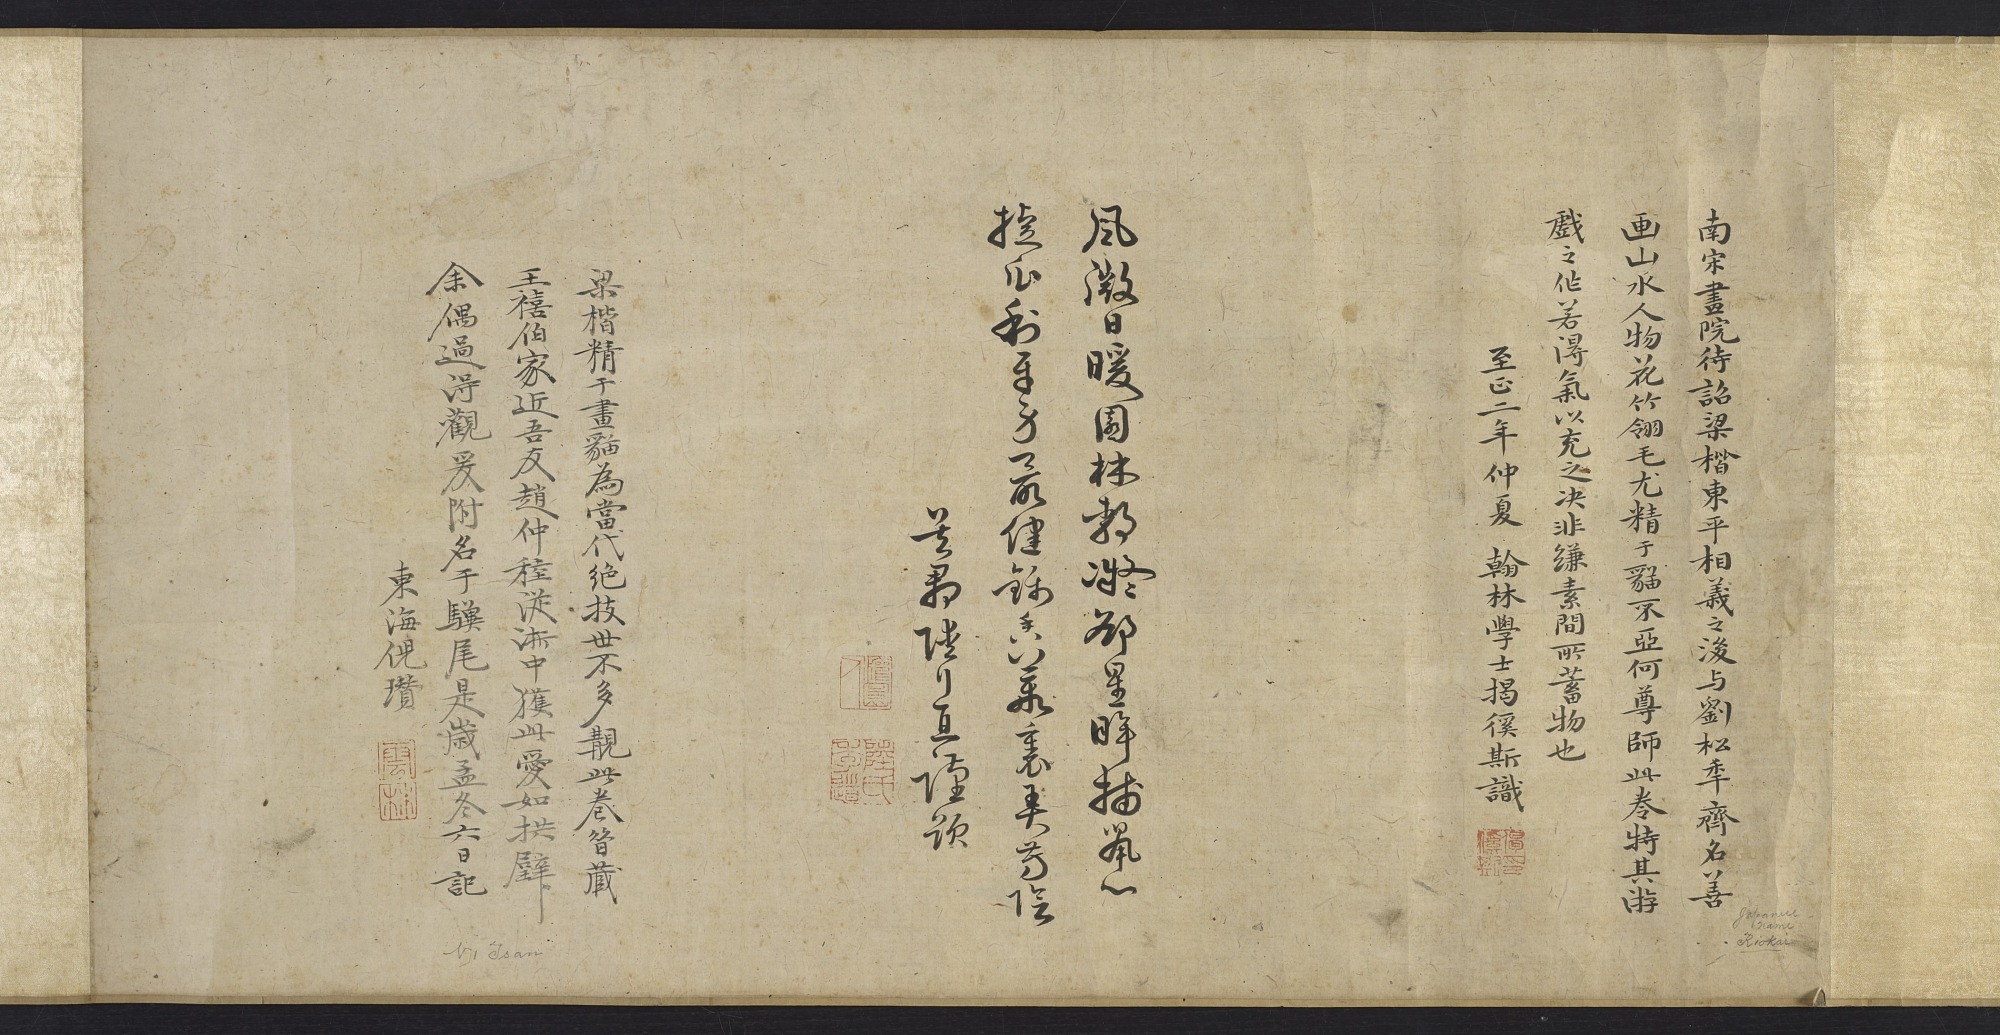 南宋畫院待詔梁楷東平相義之後与劉松年齊名善
画山水人物花竹翎毛尤精于貓不亞何尊師此卷特其游
戲之作若得氣以充之決非縑素間所蓄物也
至正二年仲夏 翰林學士揭徯斯識
風微日暖園林靜凝郤星眸捕鼠心
撿爪利牙方最健錦文叢裏弄芳陰
陸行直謹題
梁楷精于畫貓為當代絶技世不多覯此卷曾藏
王禧伯家近吾友趙仲穆從浙中獲此愛如拱璧
余偶過得觀爰附名于驥尾是歲孟冬六日記
東海倪瓚
雲林
Japanese
name
Riokai
Ni Tsan